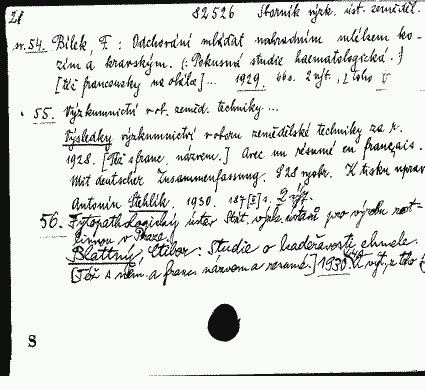 21 82526 Sborník výzk. úst. zeměděl.
sv. 54. Bílek, F.: Odchování mláďat náhradním mlékem ko-
zím a kravským. (: Pokusná studie haematologická. :)
[též francouzsky na obálce]... 1929. 66 s. 2 výt., z toho V
55. Výzkumnictví v ob. zeměd. techniky...
Výsledky výzkumnictví v oboru zemědělské techniky za r.
1928. [Též s franc. názvem.] Avec un résumé en français.
Mit deutscher Zusammenfassung. S 28 vyobr. K tisku uprav
Antonín Stehlík. 1930. 187 [I] s. 2 výt.
56. Fytopathologický ústav Stát. výzk. ústavů pro výrobu rost-
linnou v Praze.
Blattný, Ctibor: Studie o kadeřavosti chmele.
[Též s něm. a franc. názvem a resumé.] 1930. výt., z toho
S